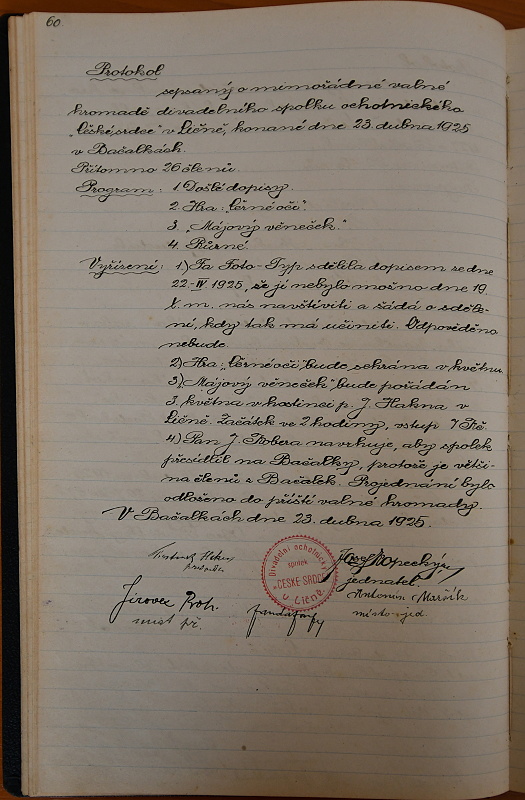 60.
Protokol
sepsaný o mimořádné valné
hromadě divadelního spolku ochotnického
„České srdce" v Ličně, konané dne 23. dubna 1925
v Bačalkách.
Přítomno 26 členů.
Program: 1. Došlé dopisy.
2. Hra: „Černé oči".
3. „Májový věneček."
4. Různé.
Vyřízení: 1) Fa Foto-Typ sdělila dopisem ze dne
22-IV 1925, že jí nebylo možno dne 19.
t. m. nás navštíviti a žádá o sděle-
ní, kdy tak má učiniti. Odpověděno
nebude.
2) Hra: „Černé oči" bude sehrána v květnu.
3) „Májový věneček" bude pořádán
3. května v hostinci p. J. Hakna v
Ličně. Začátek ve 2 hodiny, vstup 7 Kč.
4) Pan J. Kobera navrhuje, aby spolek
přesídlil na Bačalky, protože je větši-
na členů z Bačalek. Projednání bylo
odloženo do příští valné hromady.
V Bačalkách dne 23. dubna 1925.
Josef Kopecký
jednatel
Antonín Maršík
místojed.
Jirovec Proh.
míst př.
Divadelní ochotnický
spolek
„ČESKÉ SRDCE"
v Ličně